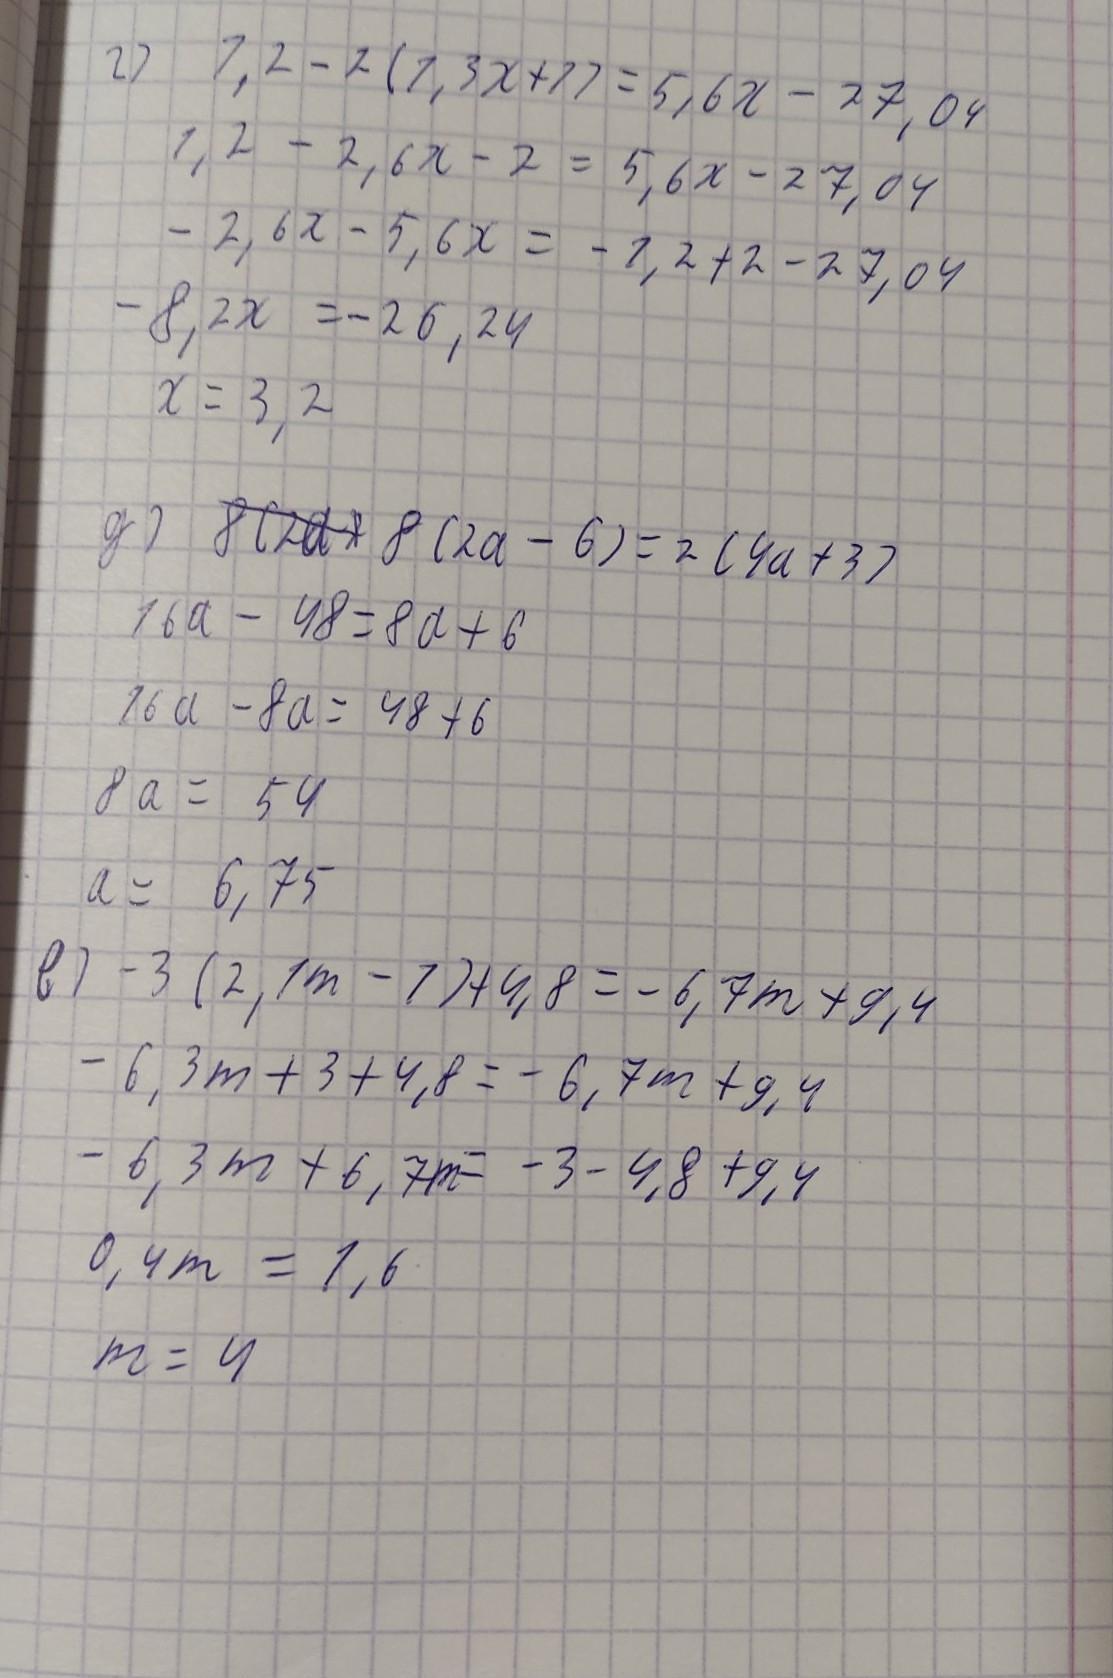 г) 1,2 - 2(1,3x+1) = 5,6x - 27,04
1,2 - 2,6x - 2 = 5,6x - 27,04
- 2,6x - 5,6x = - 1,2+2 - 27,04
- 8,2x = - 26,24
x = 3,2
д) 8(2a - 6) = 2(4a+3)
16a - 48 = 8a + 6
16a - 8a = 48+6
8a = 54
a = 6,75
в) -3(2,1m - 1)+4,8 = - 6,7m + 9,4
- 6,3m + 3 + 4,8 = - 6,7m + 9,4
- 6,3m + 6,7m = -3 - 4,8 + 9,4
0,4m = 1,6
m = 4